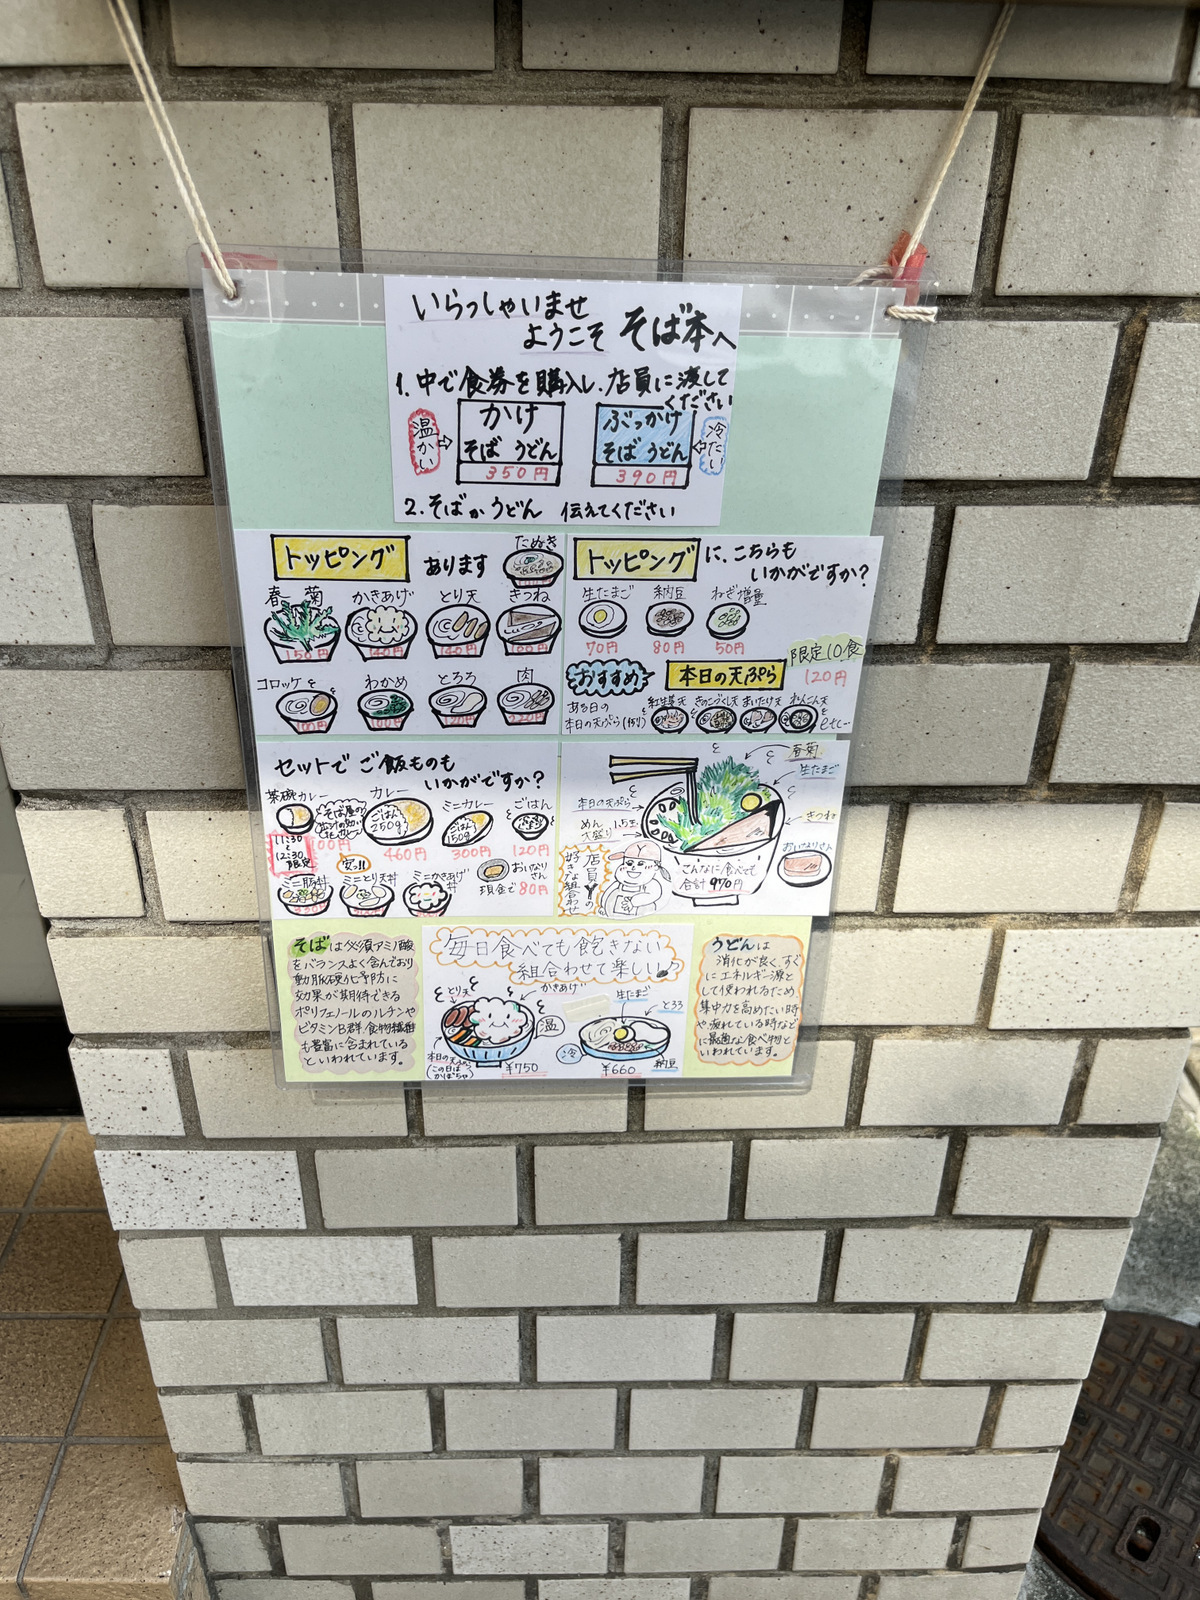 いらっしゃいませ
ようこそ そば本へ
1.中で食券を購入し、店員に渡して
ください
温かい
かけ
そば うどん
350円
ぶっかけ
そば うどん
390円
冷たい
2.そばかうどん 伝えてください
トッピング あります
たぬき
春菊 かきあげ とり天 きつね
150円 140円 140円 100円
コロッケ わかめ とろろ 肉
100円 100円
トッピング に、こちらも
いかがですか?
生たまご 納豆 ねぎ増量
70円 80円 50円
限定10食
おすすめ 本日の天ぷら 120円
ある日の
本日の天ぷら(例)
紅生姜天 きのこづくし天 まいたけ天 れんこん天
etc…
セットで ご飯ものも
いかがですか?
茶碗カレー カレー ミニカレー ごはん
ごはん
250g
ごはん
150g
11:30
12:30
限定
100円 460円 300円 120円
安っ!!
ミニ豚丼 ミニとり天丼 ミニかきあげ丼
おいなりさん
現金で80円
春菊
生たまご
本日の天ぷら
きつね
めん
大盛り 1.5玉
おいなりさん
店員Yの
好きな組合わせ
こんなに食べても
合計970円
そばは必須アミノ酸
をバランスよく含んでおり
動脈硬化予防に
効果が期待できる
ポリフェノールのルチンや
ビタミンB群、食物繊維
も豊富に含まれている
といわれています。
毎日食べても飽きない
組合わせて楽しい♪
とり天
かきあげ
温
本日の天ぷら
(この日は
かぼちゃ)
¥750
生たまご
とろろ
冷
納豆
¥660
うどんは
消化が良く、すぐ
にエネルギー源と
して使われるため
集中力を高めたい時
や疲れている時など
に最適な食べ物と
いわれています。